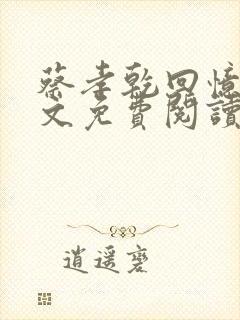 蔡孝乾回憶
文免費閱讀
逍遥磬